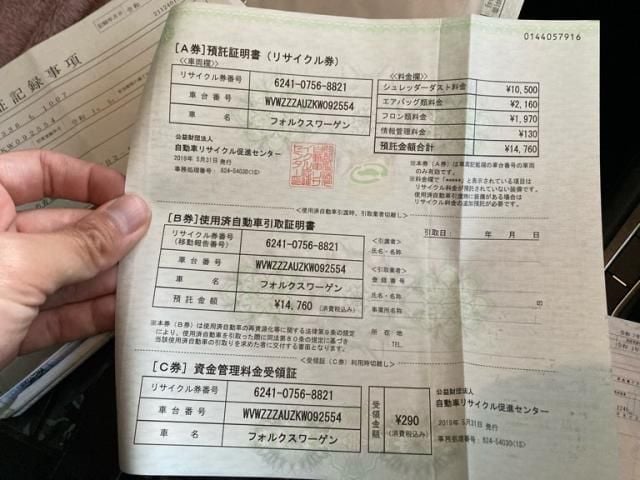 0144057916
証記録事項
[A券]預託証明書（リサイクル券）
<<車両欄>>
リサイクル券番号 6241-0756-8821
車台番号 WVWZZZAUZKW092554
車名 フォルクスワーゲン
<<料金欄>>
シュレッダーダスト料金 ¥10,500
エアバッグ類料金 ¥2,160
フロン類料金 ¥1,970
情報管理料金 ¥130
預託金額合計 ¥14,760
公益財団法人
自動車リサイクル促進センター
2019年 5月31日 発行
事務処理番号:
※本券（A券）は車両記載場の車台番号の車両
のみ有効です。
※料金欄で「*****」と表示されている項目は
リサイクル料金が預託されていない装備です。
使用済自動車引渡時に装備がある場合は
リサイクル料金の追加預託が必要です。
<使用済自動車引渡時、引取業者切離し>
[B券]使用済自動車引取証明書
引取日： 年 月 日
リサイクル券番号
(移動報告番号) 6241-0756-8821
車台番号 WVWZZZAUZKW092554
車名 フォルクスワーゲン
預託金額 ¥14,760 (消費税込み)
<引渡者>
氏名・名称
<引取業者>
登録番号
氏名・名称
事業所名称
所在地
TEL.
※本券（B券）は使用済自動車の再資源化等に関する法律第9条の規定
により、使用済自動車を引取った際に同法第80条の規定に基づき
当該使用済自動車の引取りを求めた者に交付する書面となります。
<受領証（C券）利用時切離し>
[C券] 資金管理料金受領証
リサイクル券番号 6241-0756-8821
車台番号 WVWZZZAUZKW092554
車名 フォルクスワーゲン
受領金額 ¥290
(消費税込み)
公益財団法人
自動車リサイクル促進センター
2019年 5月31日 発行
事務処理番号: